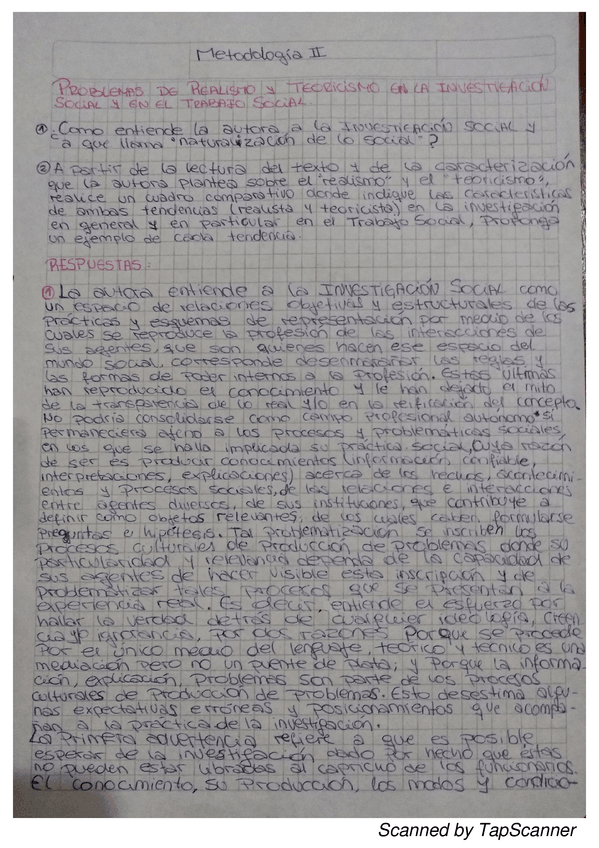 Metodología II
PROBLEMAS DE REALISMO Y TEORICISMO EN LA INVESTIGACIÓN
SOCIAL Y EN EL TRABAJO SOCIAL
① ¿Como entiende la autora a la INVESTIGACIÓN SOCIAL y
a que llama "naturalización de lo social"?
② A partir de la lectura del texto y de la caracterización
que la autora plantea sobre el "realismo" y el "teoricismo",
realice un cuadro comparativo donde indique las características
de ambas tendencias (realista y teoricista) en la investigación
en general y en particular en el Trabajo Social, Proponga
un ejemplo de cada tendencia.
RESPUESTAS:
① La autora entiende a la INVESTIGACIÓN SOCIAL como
un espacio de relaciones objetivas y estructurales de las
Prácticas y esquemas de representación por medio de los
cuales se reproduce la profesión de las interacciones de
sus agentes, que son quienes hacen ese espacio del
mundo social, corresponde desenmarañar las reglas y
las formas de poder internos a la Profesión. Estas últimas
han reproducido el conocimiento y le han dejado el mito
de la transparencia de lo real y/o en la reificación del concepto.
No podría consolidarse como campo profesional autónomo si
permaneciera ajeno a los procesos y problemáticas sociales
en los que se halla implicada su práctica social, cuya razón
de ser es producir conocimientos (información confiable,
interpretaciones, explicaciones) acerca de los hechos, acontecimi-
entos y procesos sociales, de las relaciones e interacciones
entre agentes diversos, de sus instituciones, que contribuye a
definir como objetos relevantes, de los cuales caben formularse
preguntas e hipótesis. Tal problematización se inscribe en los
Procesos culturales de producción de problemas, donde su
particularidad y relevancia dependa de la capacidad de
sus agentes de hacer visible esta inscripción y de
problematizar tales procesos que se presentan a la
experiencia real. Es decir, entiende el esfuerzo por
hallar la verdad detrás de cualquier ideología, creen-
cia y/o ignorancia, por dos razones Porque se procede
Por el único medio del lenguaje, teórico y técnico es una
mediación pero no un puente de plata, y porque la informa-
ción, explicación, problemas son parte de los procesos
culturales de Producción de problemas. Esto desestima algu-
nas expectativas erróneas y posicionamientos que acompa-
ñan a la práctica de la investigación.
La primera advertencia refiere a que es posible
esperar de la investigación dado por hecho que éstas
no pueden estar libradas al capricho de los funcionarios.
El conocimiento, su Producción, los modos y condicio-
Scanned by TapScanner